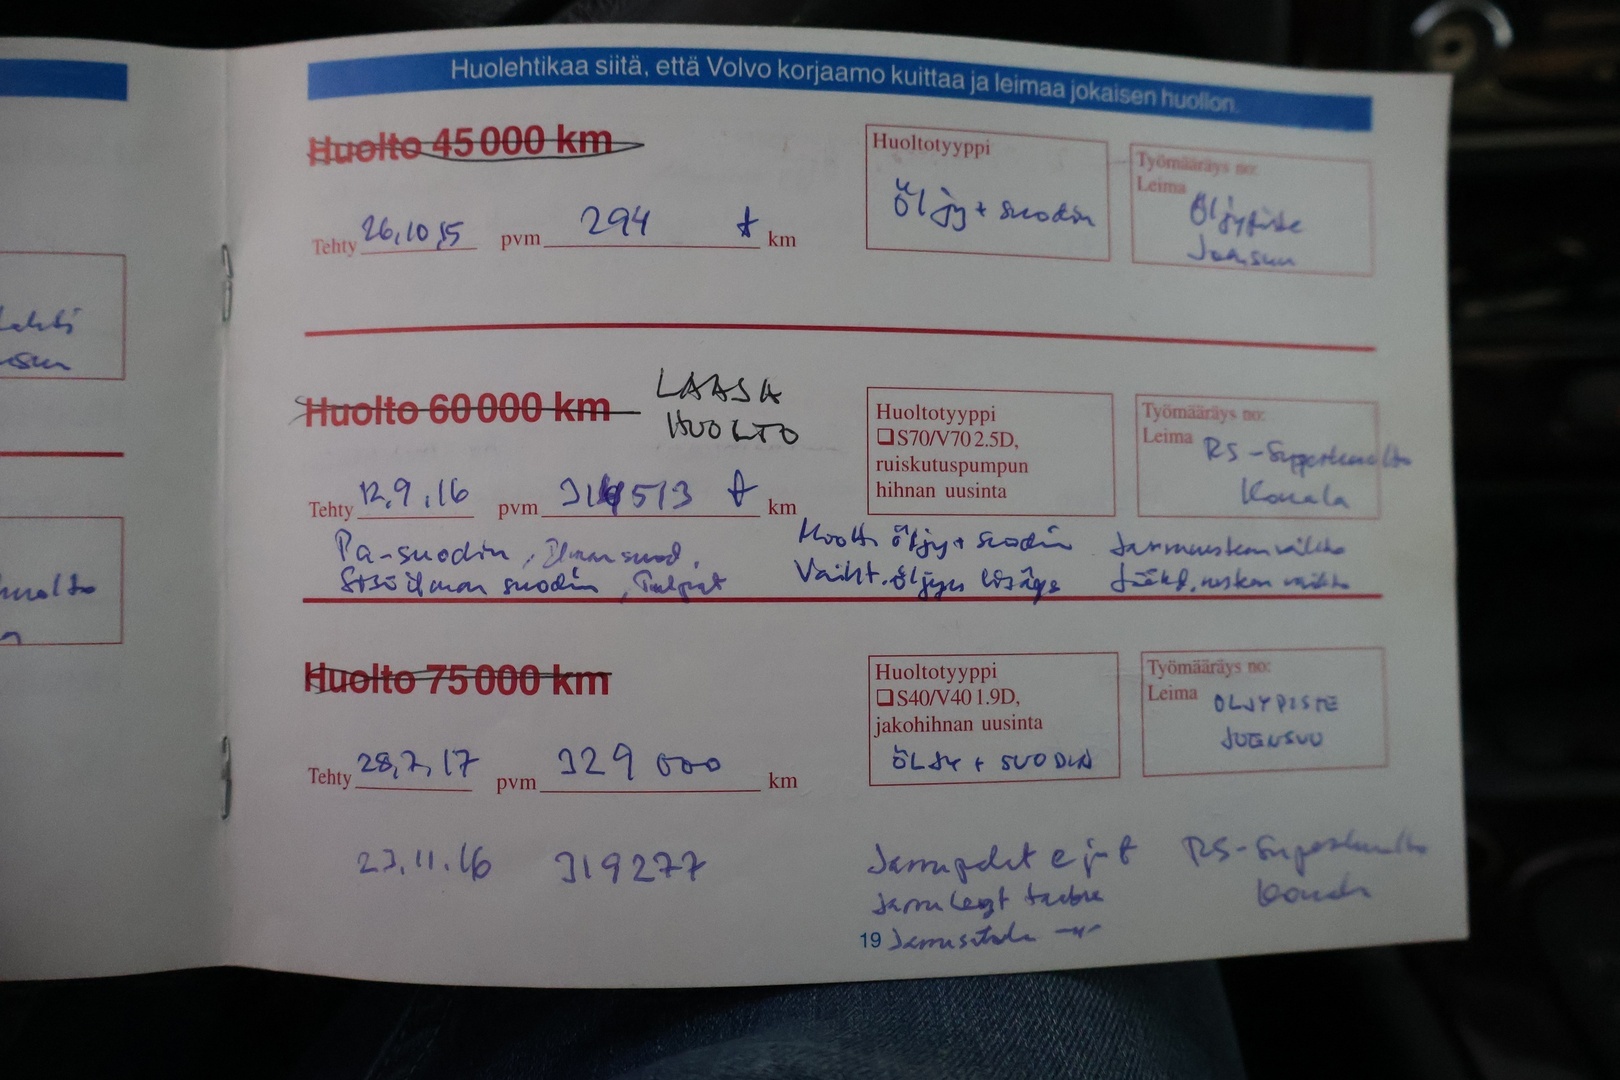 Huolehtikaa siitä, että Volvo korjaamo kuittaa ja leimaa jokaisen huollon.
Huolto 45 000 km
Tehty 26.10.15 pvm 294 t km
Huoltotyyppi
Öljy + suodin
Työmääräys no:
Leima
Öljypiste
Joensuu
Huolto 60 000 km
LAAJA
HUOLTO
Tehty 12.9.16 pvm 314513 km
Huoltotyyppi
❑ S70/V70 2.5D,
ruiskutuspumpun
hihnan uusinta
Työmääräys no:
Leima
RS-Superhuolto
Konala
Pa-suodin, Ilman suod,
Sisäilman suodin, Tulpat
Moott. öljy + suodin
Vaiht. öljyn lisäys
Jarrunesteen vaihto
Jäähd.nesteen vaihto
Huolto 75 000 km
Tehty 28.7.17 pvm 329 000 km
Huoltotyyppi
❑ S40/V40 1.9D,
jakohihnan uusinta
ÖLJY + SUODIN
Työmääräys no:
Leima
ÖLJYPISTE
JOENSUU
23.11.16 319277
Jarrupalat e ja t
Jarrulevyt takana
RS-Superhuolto
Konala
19